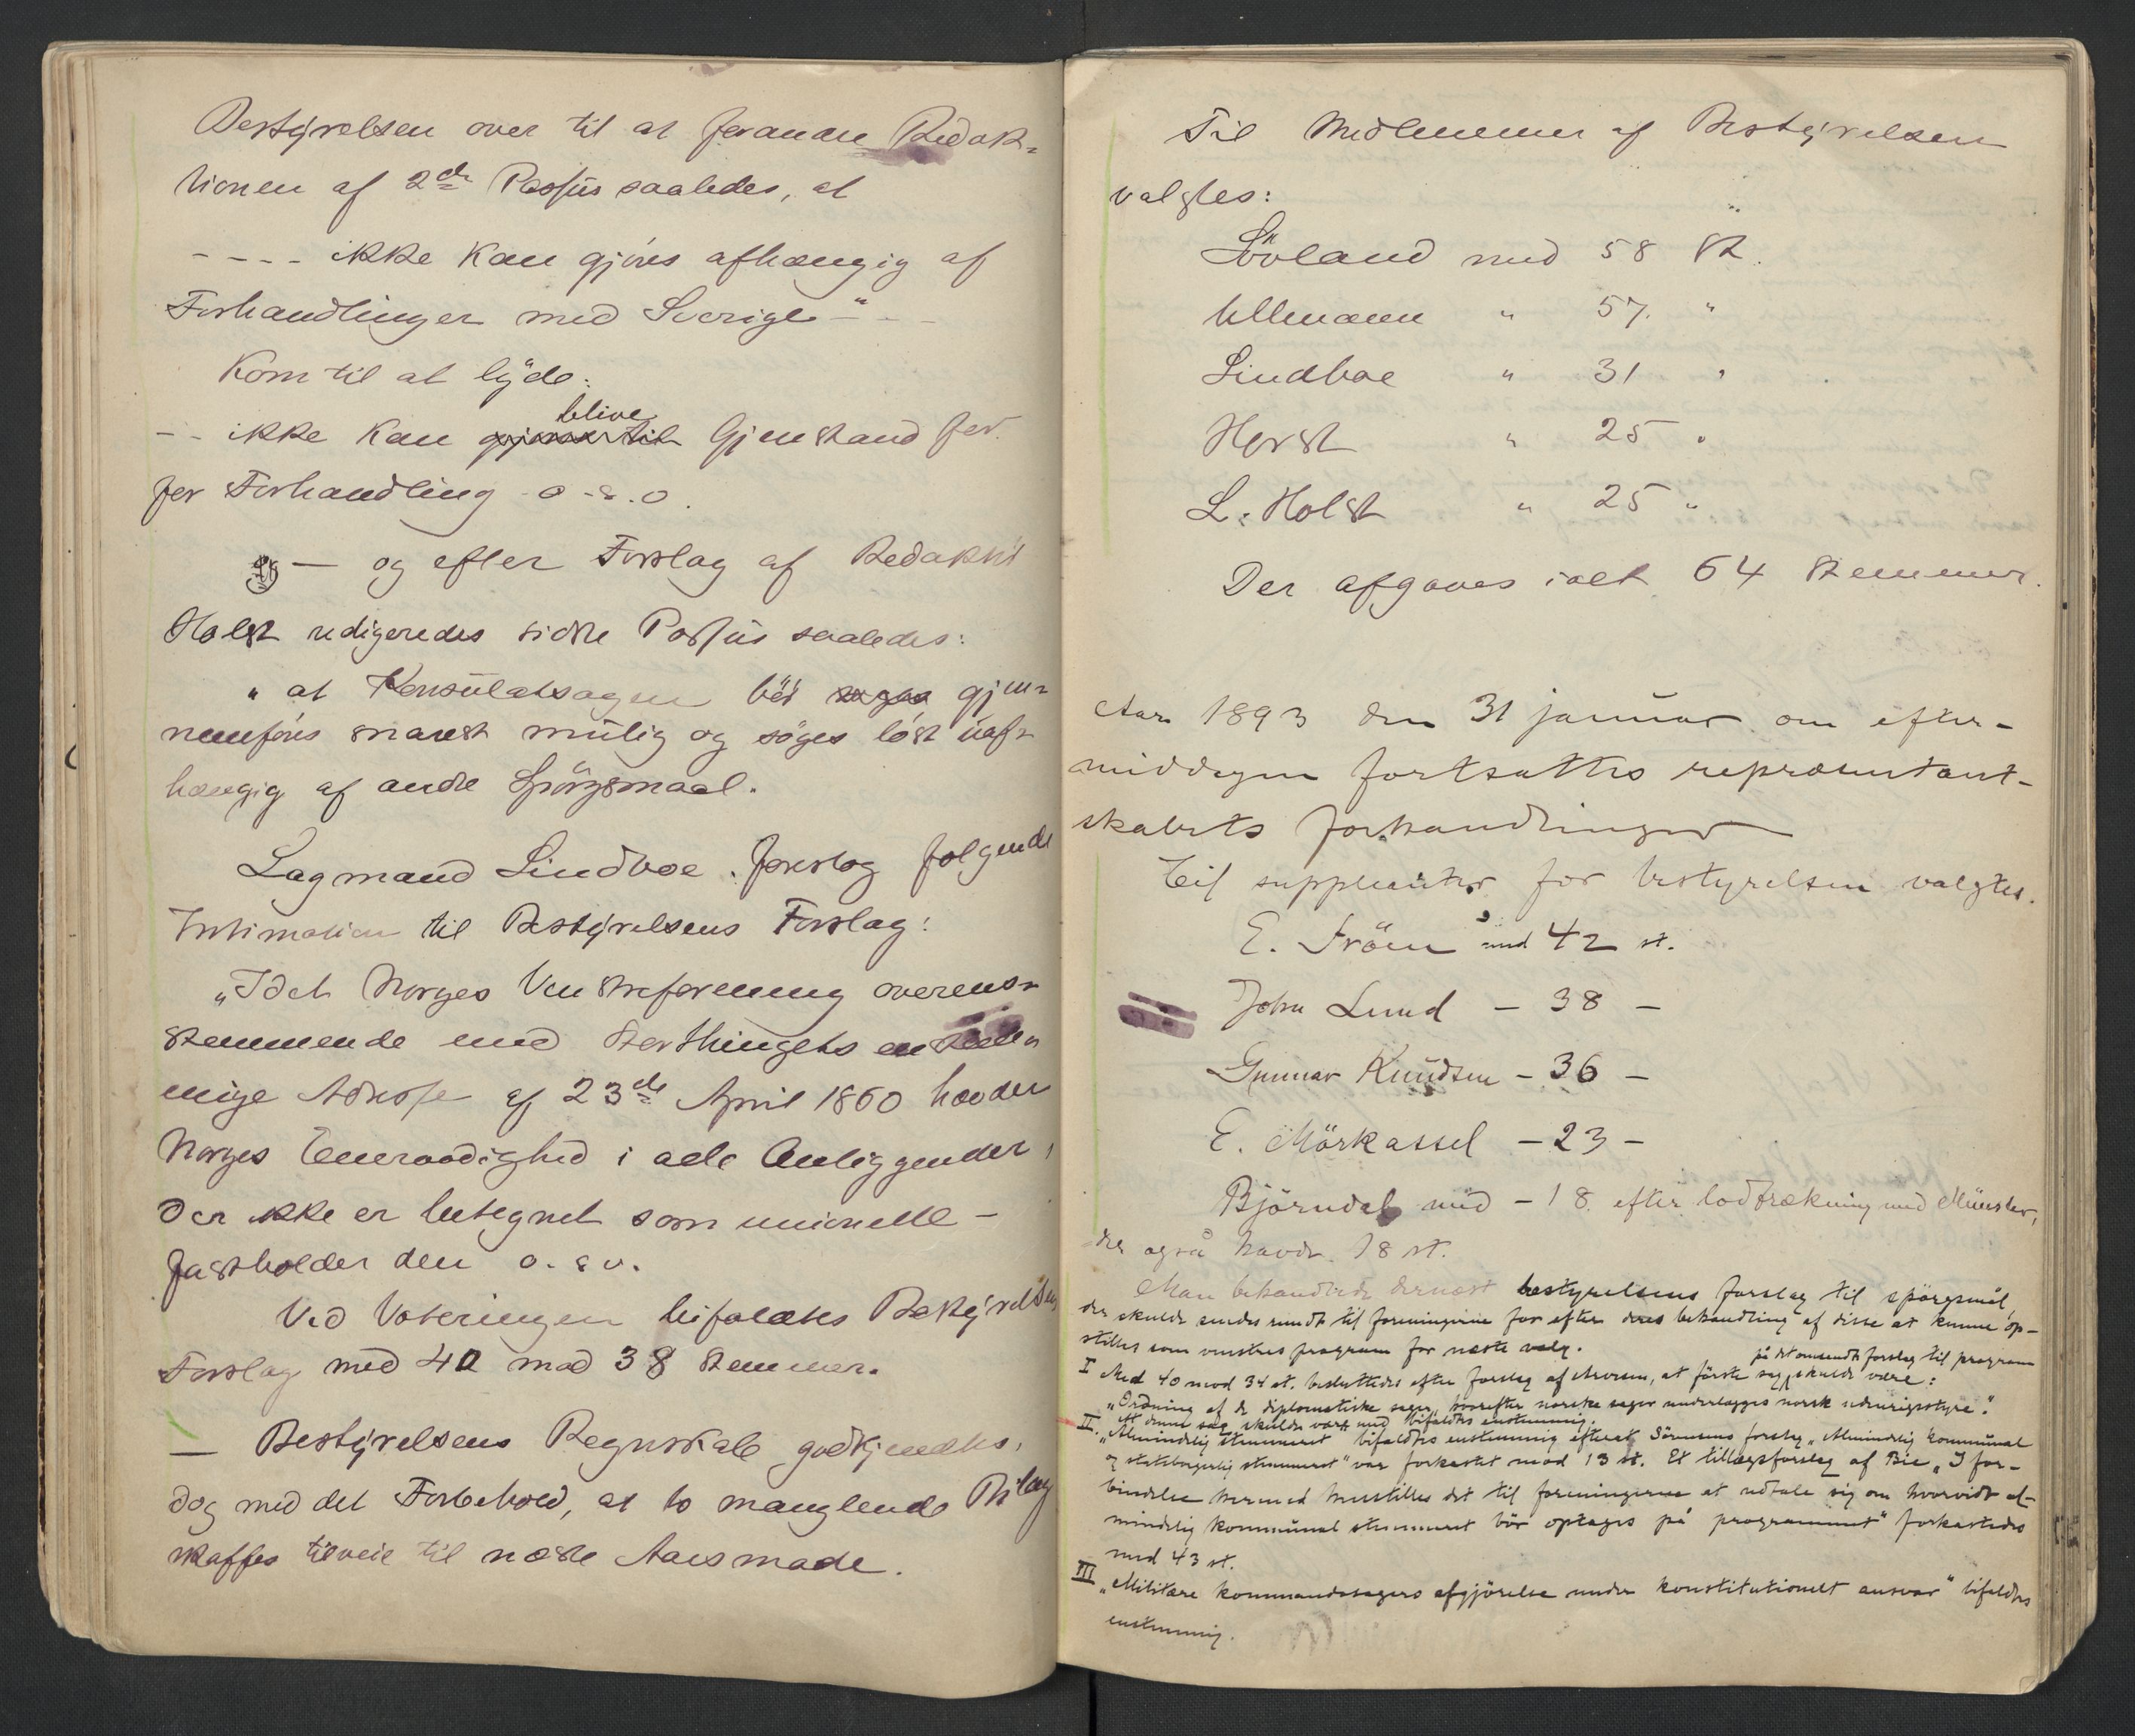 Bestyrelsen over til at forandre Redak-
tionen af 2den Passus saaledes, at
---- ikke kan gjøres afhængig af
Forhandlinger med Sverige" --
Kom til at lyde:
-- ikke kan blive Gjenstand for
for Forhandling o.s.v.
— og efter Forslag af Redaktør
Holst redigeredes sidste Passus saaledes:
"at Konsulatsagen bør gjen-
nemføres snarest mulig og søges løst uaf-
hængig af andre Spørgsmaal.
Lagmand Lindboe foreslog følgende
Intimation til Bestyrelsens Forslag:
"Idet Norges Venstreforening overens-
stemmende med Storthingets enstem-
mige Adresse af 23de April 1860 hævder
Norges Eneraadighed i alle Anliggender,
der ikke er betegnet som unionelle -
fastholder den o.s.v.
Ved Voteringen bifaldtes Bestyrelsens
Forslag med 40 mod 38 Stemmer.
— Bestyrelsens Regnskab godkjendtes,
dog med det Forbehold, at to manglende Bilag
skaffes tilveie til næste Aarsmøde.
Til Medlemmer af Bestyrelsen
valgtes:
Løvland med 58 St.
Ullmann " 57. "
Lindboe " 31 "
Horst " 25 "
L. Holst " 25 "
Der afgaves ialt 64 Stemmer.
Aar 1893 den 31 januar om efter-
middagen fortsattes repræsentant-
skabets forhandlinger
Til suppleanter for bestyrelsen valgtes.
E. Tröen med 42 st.
John Lund - 38 -
Gunnar Knudsen - 36 -
E. Mörkassel - 23 -
Björndal med - 18. efter lodtrækning med Münster,
der også havde 18 st.
Man behandlede dernæst bestyrelsens forslag til spörgsmål,
der skulde sendes rundt til foreningerne for efter deres behandling af disse at kunne op-
stilles som venstres program for næste valg.
på det omsendte forslag til program
I Med 40 mod 34 st. besluttedes efter forslag af, at förste sag skulde være:
"Ordning af de diplomatiske sager, hvorefter norske sager underlægges norsk udenrigsstyre."
At denne sag skulde være med bifaldtes enstemmig.
II. "Almindelig stemmeret" bifaldtes enstemmig efterat Sörensens forslag "Almindelig kommunal
og statsborgerlig stemmeret" var forkastet mod 13 st. Et tillægsforslag af Bie "I for-
bindelse hermed henstilles det til foreningerne at udtale sig om hvorvidt al-
mindelig kommunal stemmeret bör optages på programmet" forkastedes
med 43 st.
III "Militære kommandosagers afgjörelse under konstitutionelt ansvar" bifaldtes
enstemmig.